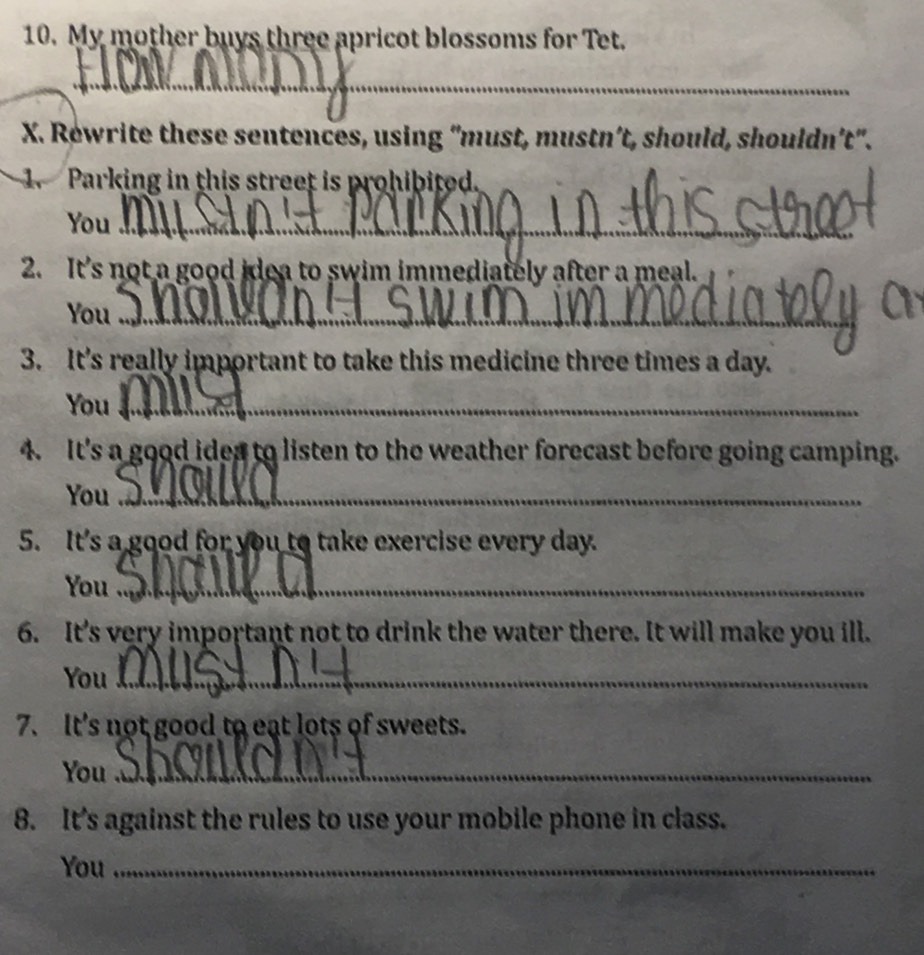 10. My mother buys three apricot blossoms for Tet.
How many
X. Rewrite these sentences, using "must, mustn't, should, shouldn't".
1. Parking in this street is prohibited.
You mustn't parking in this street
2. It's not a good idea to swim immediately after a meal.
You shouldn't swim immediately
3. It's really important to take this medicine three times a day.
You
4. It's a good idea to listen to the weather forecast before going camping.
You should
5. It's a good for you to take exercise every day.
You should
6. It's very important not to drink the water there. It will make you ill.
You mustn't
7. It's not good to eat lots of sweets.
You shouldn't
8. It's against the rules to use your mobile phone in class.
You